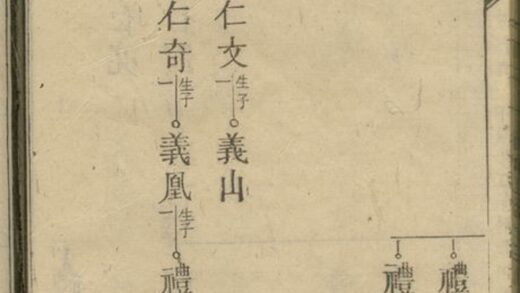 禮
禮
仁文
生子一
義山
仁奇
生子一
義凰
生子一
禮